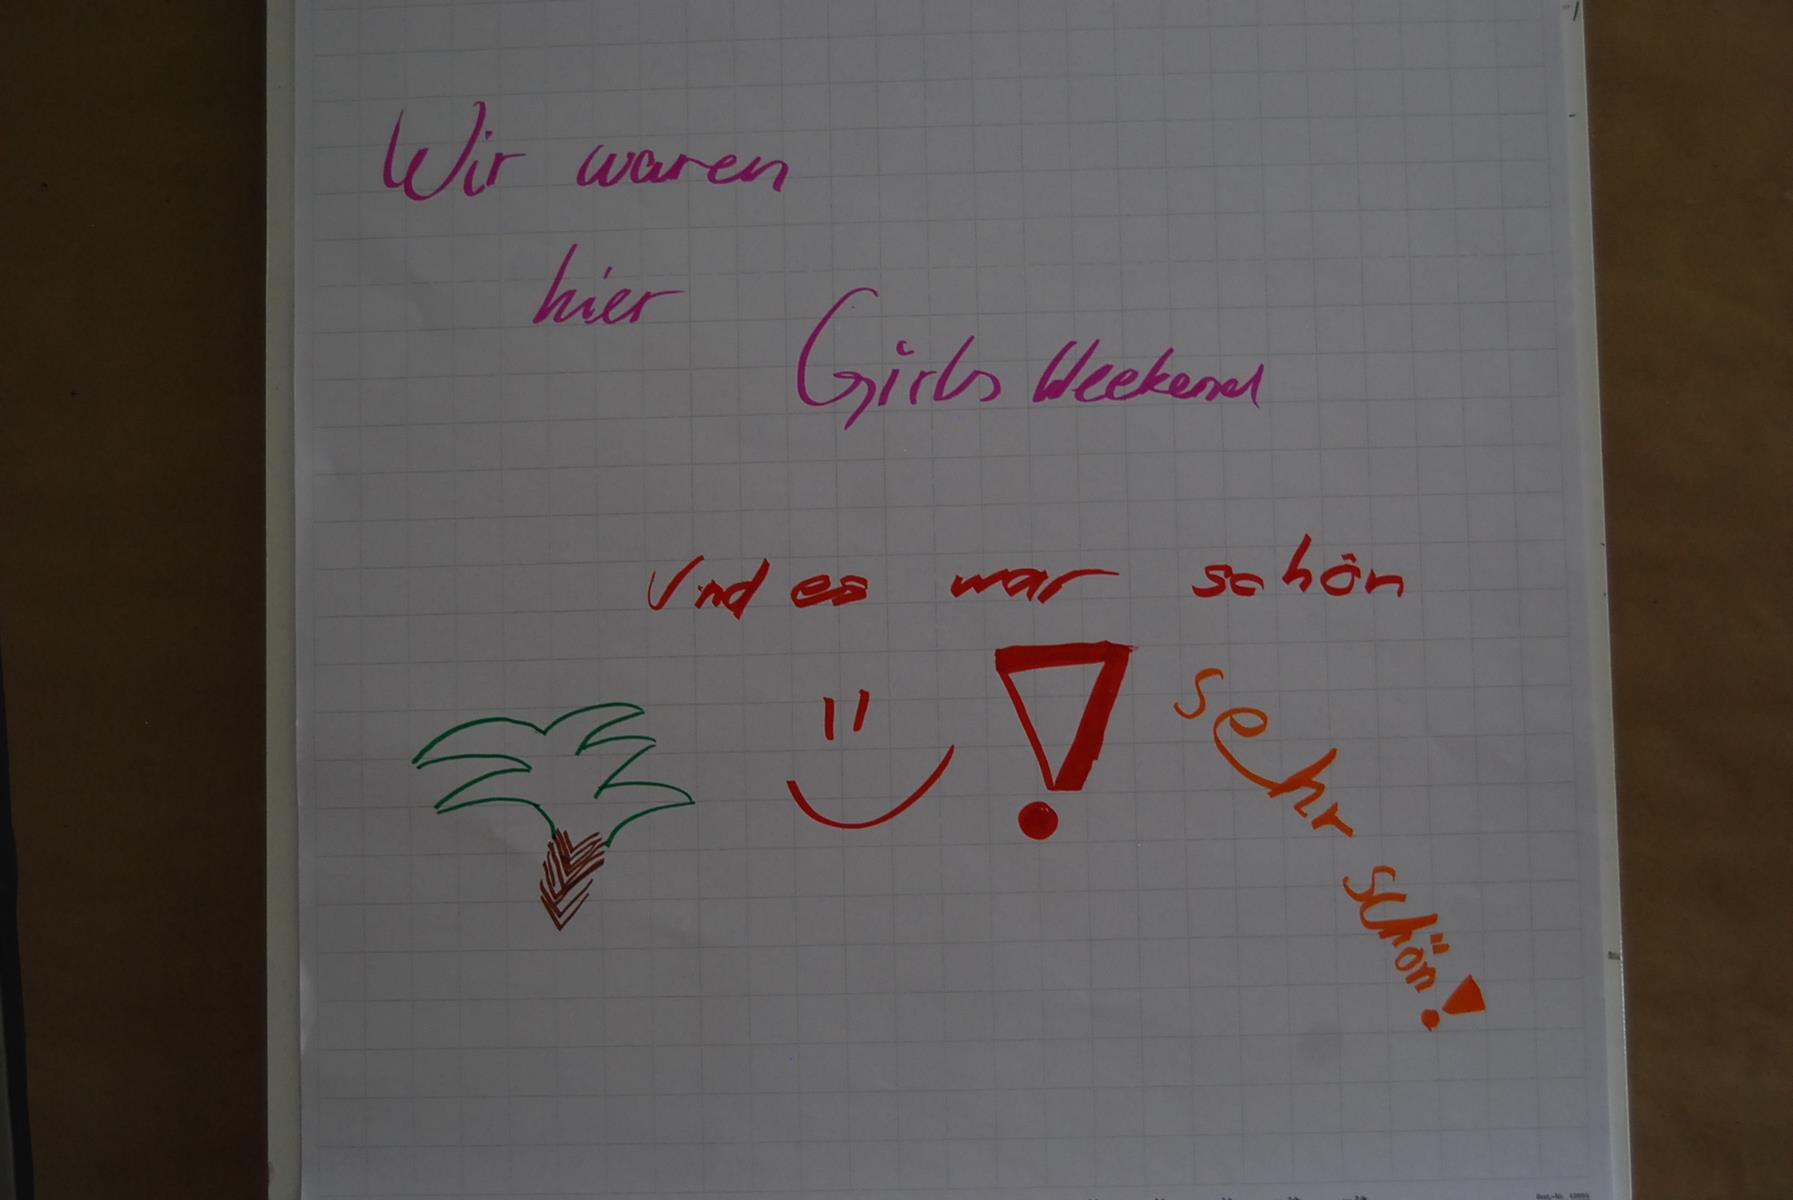 Wir waren
hier
Girls Weekend
Und es war schön
!
sehr schön!